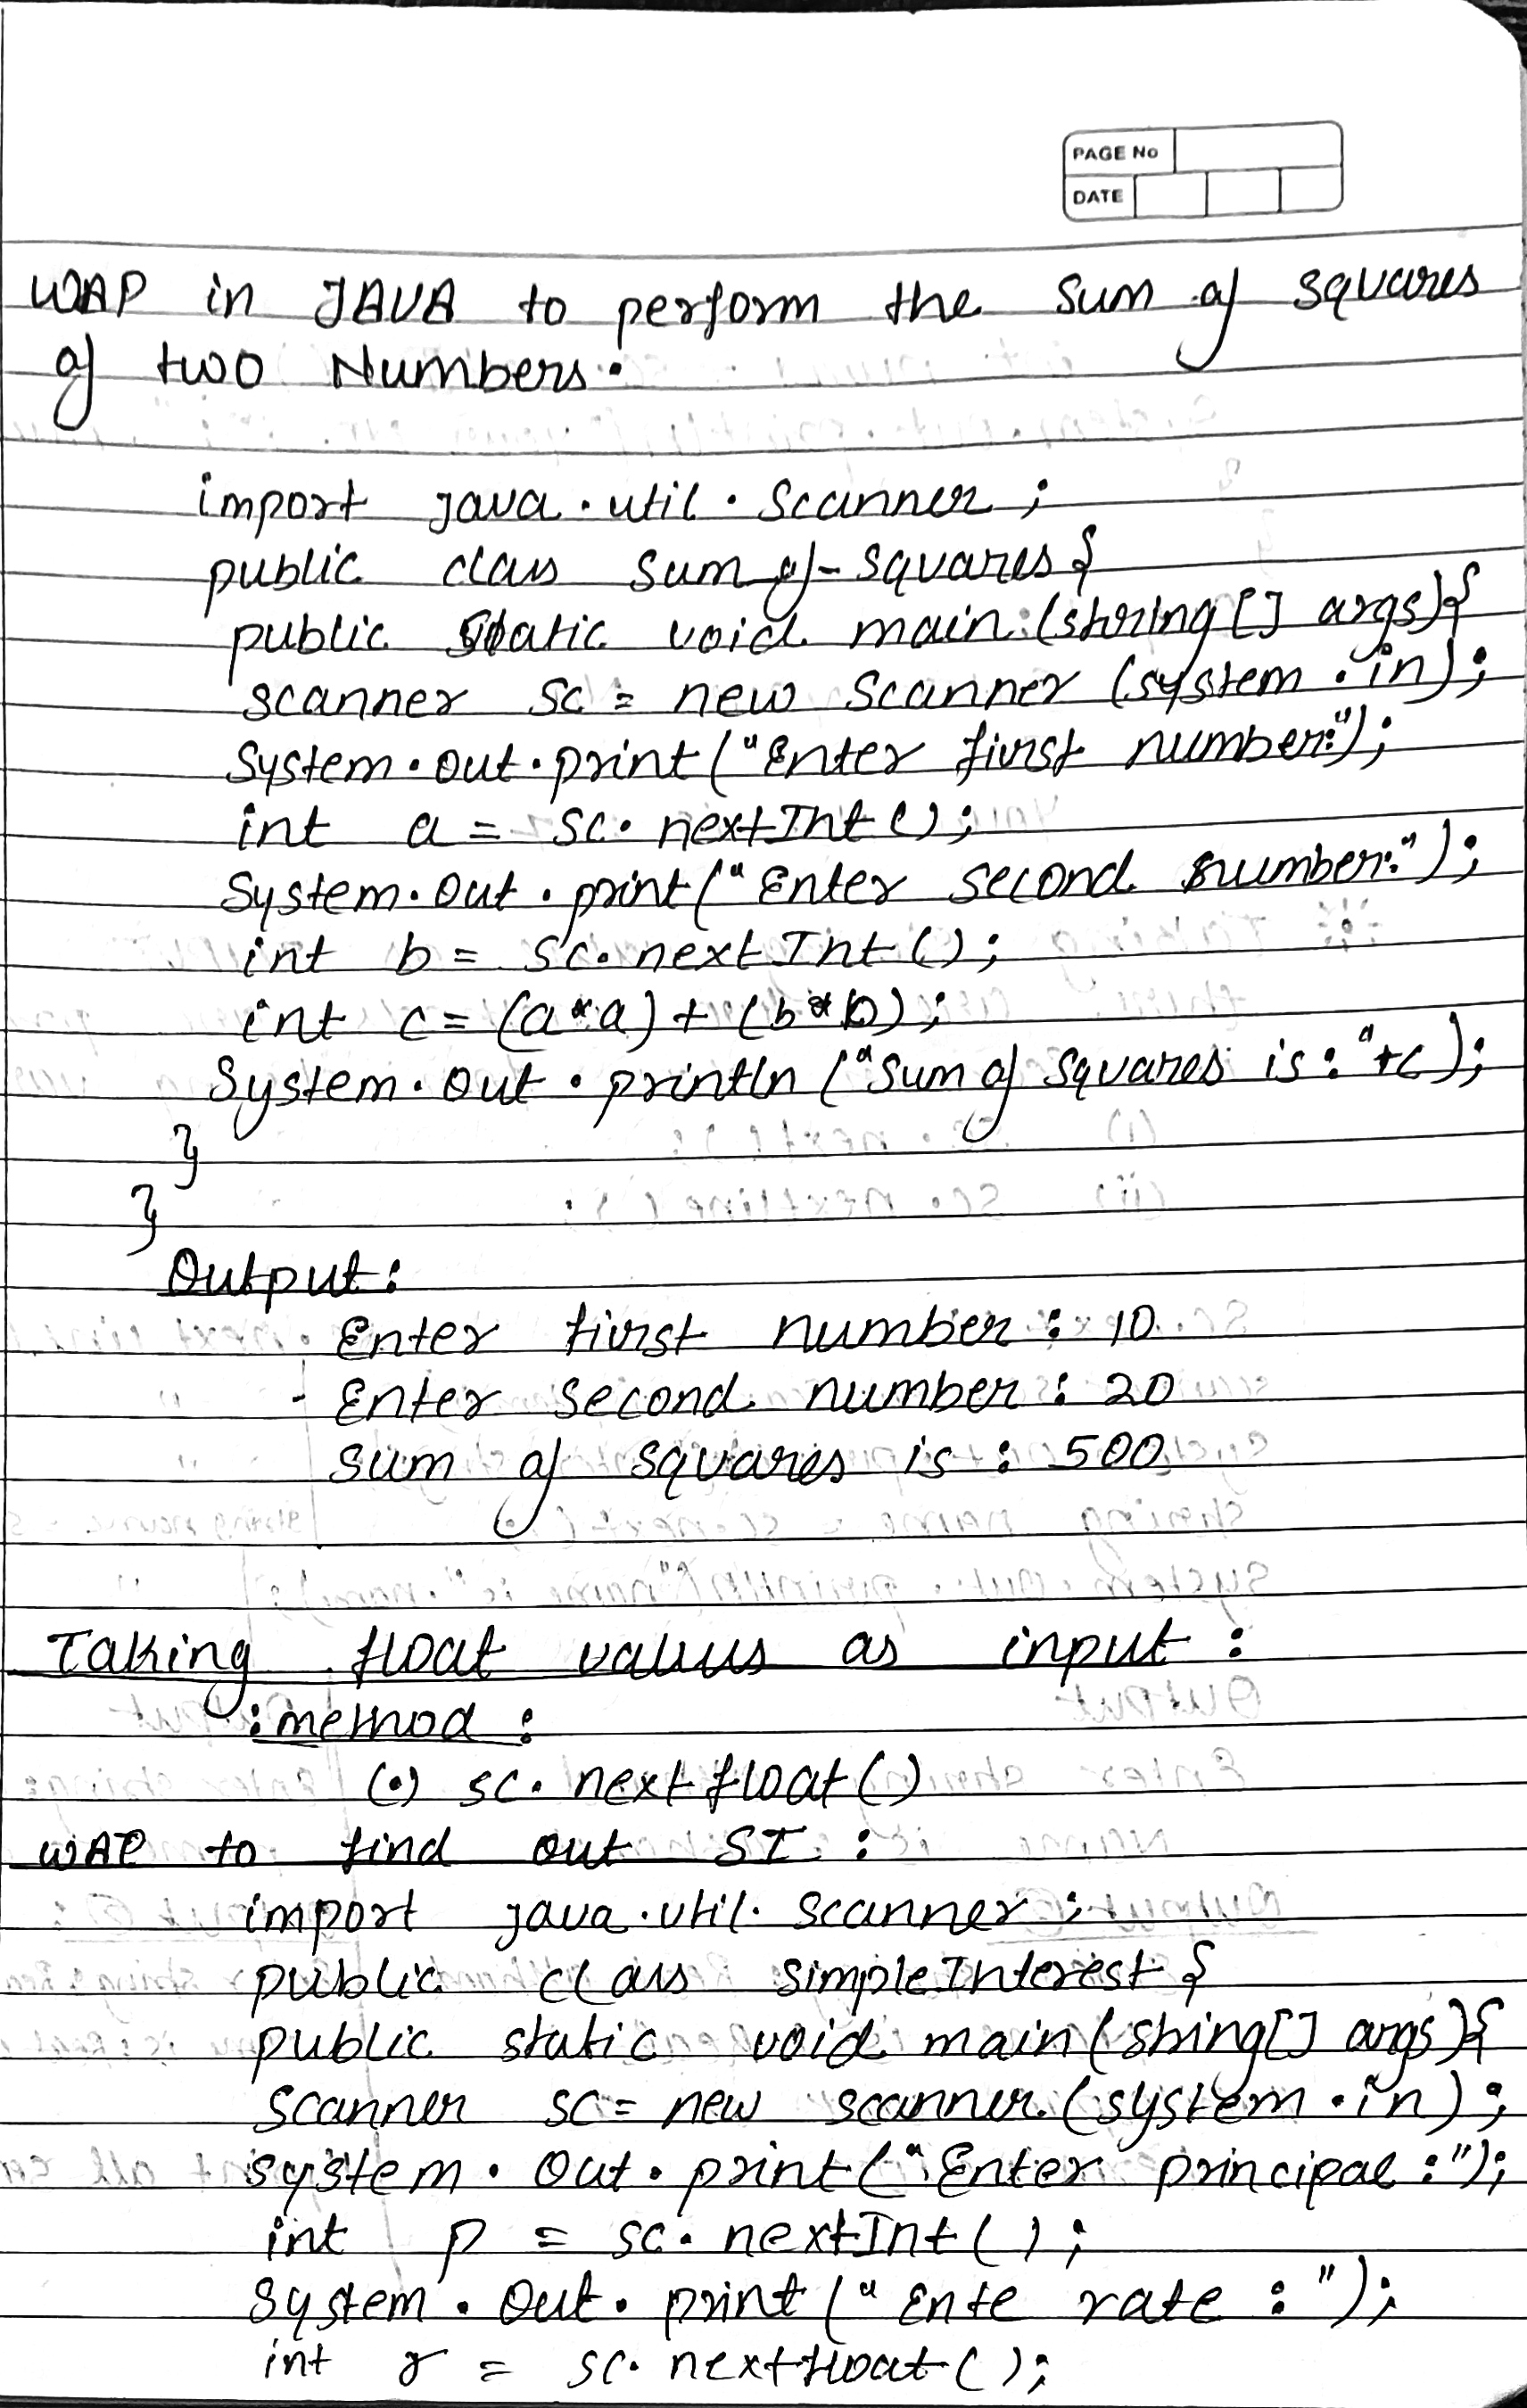 PAGE No
DATE
WAP in JAVA to perform the sum of squares
of two Numbers.
import java.util.Scanner;
public class sum_of-squares{
public static void main(string[] args){
scanner sc = new Scanner (system.in);
System.out.print("Enter first number:");
int a = sc.nextInt();
System.out.print("Enter second number:");
int b = sc.nextInt();
int c = (a*a) + (b*b);
System.out.println("Sum of squares is:"+c);
}
}
Output:
Enter first number: 10
- Enter second number: 20
sum of squares is: 500
Taking float values as input:
:method:
(•) sc.nextfloat()
WAP to find out SI:
import java.util.Scanner;
public class simpleInterest{
public static void main(string[] args){
Scanner sc = new scanner(system.in);
system.out.print("Enter principal:");
int p = sc.nextInt();
System.out.print("Ente rate:");
int r = sc.nextfloat();